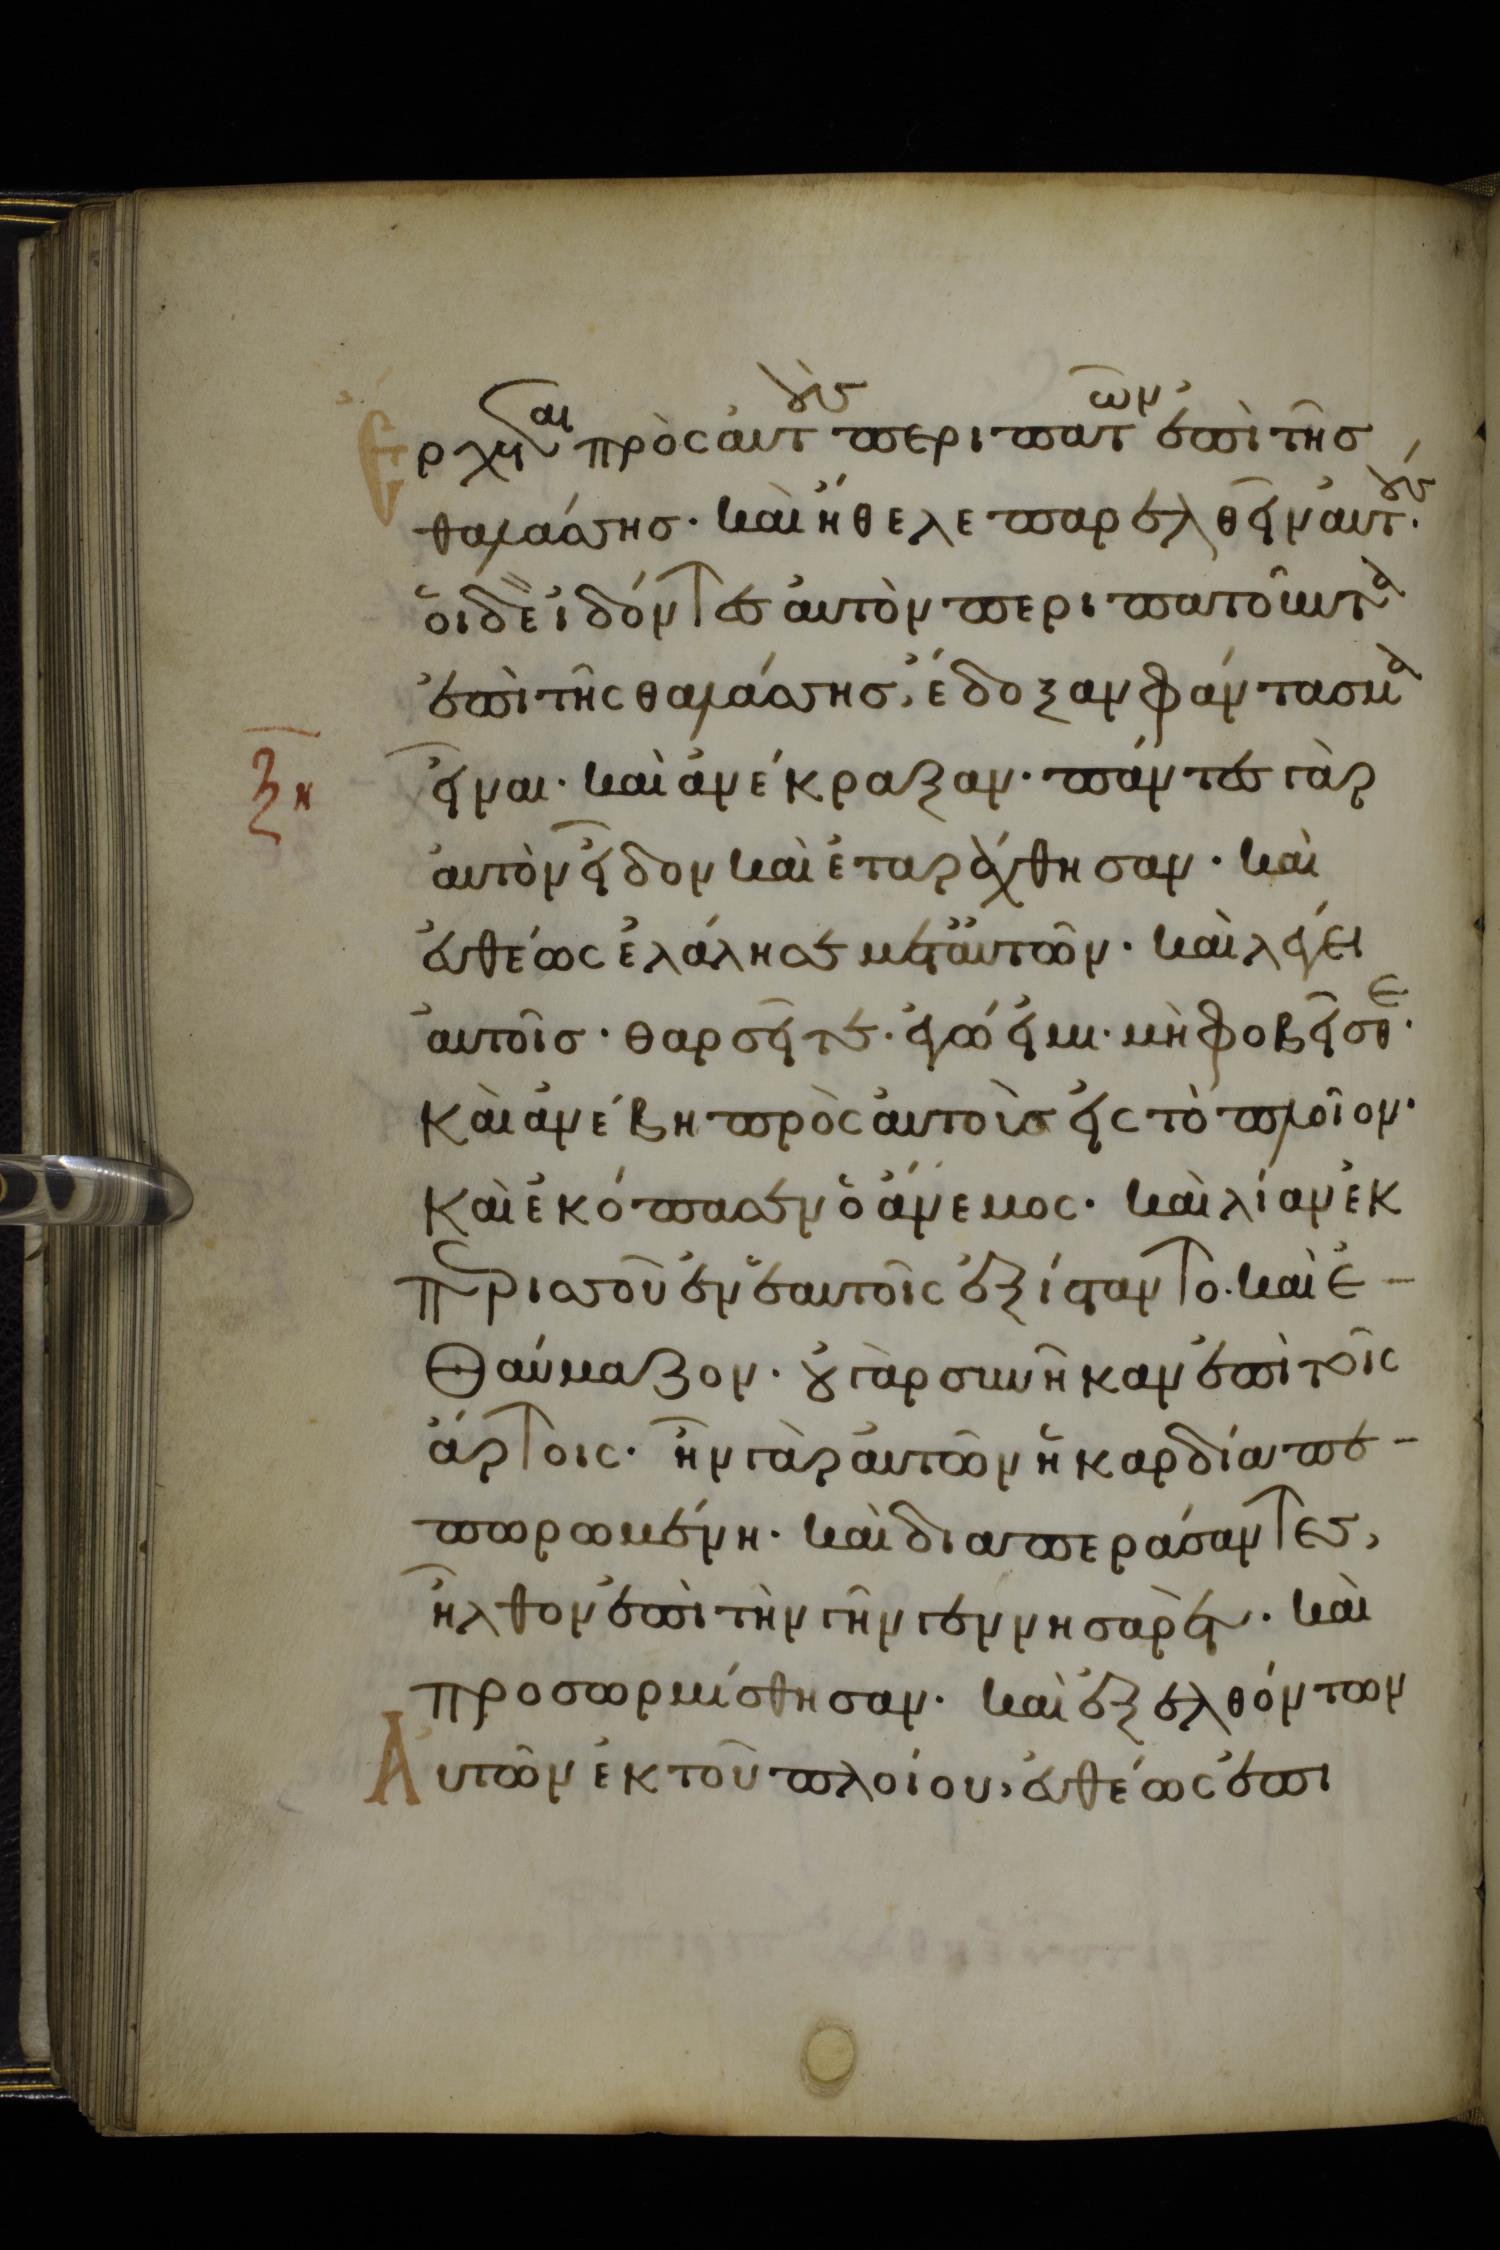 Ἔρχεται πρὸς αὐτοὺς περιπατῶν ἐπὶ τῆς
θαλάσσης· καὶ ἤθελε παρελθεῖν αὐτούς·
οἱ δὲ ἰδόντες αὐτὸν περιπατοῦντα
ἐπὶ τῆς θαλάσσης, ἔδοξαν φάντασμα
ξη
εἶναι· καὶ ἀνέκραξαν· πάντες γὰρ
αὐτὸν εἶδον καὶ ἐταράχθησαν· καὶ
εὐθέως ἐλάλησε μετ' αὐτῶν· καὶ λέγει
αὐτοῖς· θαρσεῖτε· ἐγώ εἰμι· μὴ φοβεῖσθε·
καὶ ἀνέβη πρὸς αὐτοὺς εἰς τὸ πλοῖον·
καὶ ἐκόπασεν ὁ ἄνεμος· καὶ λίαν ἐκ
περισσοῦ ἐν ἑαυτοῖς ἐξίσταντο· καὶ ἐ-
θαύμαζον· οὐ γὰρ συνῆκαν ἐπὶ τοῖς
ἄρτοις· ἦν γὰρ αὐτῶν ἡ καρδία πε-
πωρωμένη· καὶ διαπεράσαντες,
ἦλθον ἐπὶ τὴν γῆν γεννησαρὲτ· καὶ
προσωρμίσθησαν· καὶ ἐξελθόντων
Αὐτῶν ἐκ τοῦ πλοίου, εὐθέως ἐπι